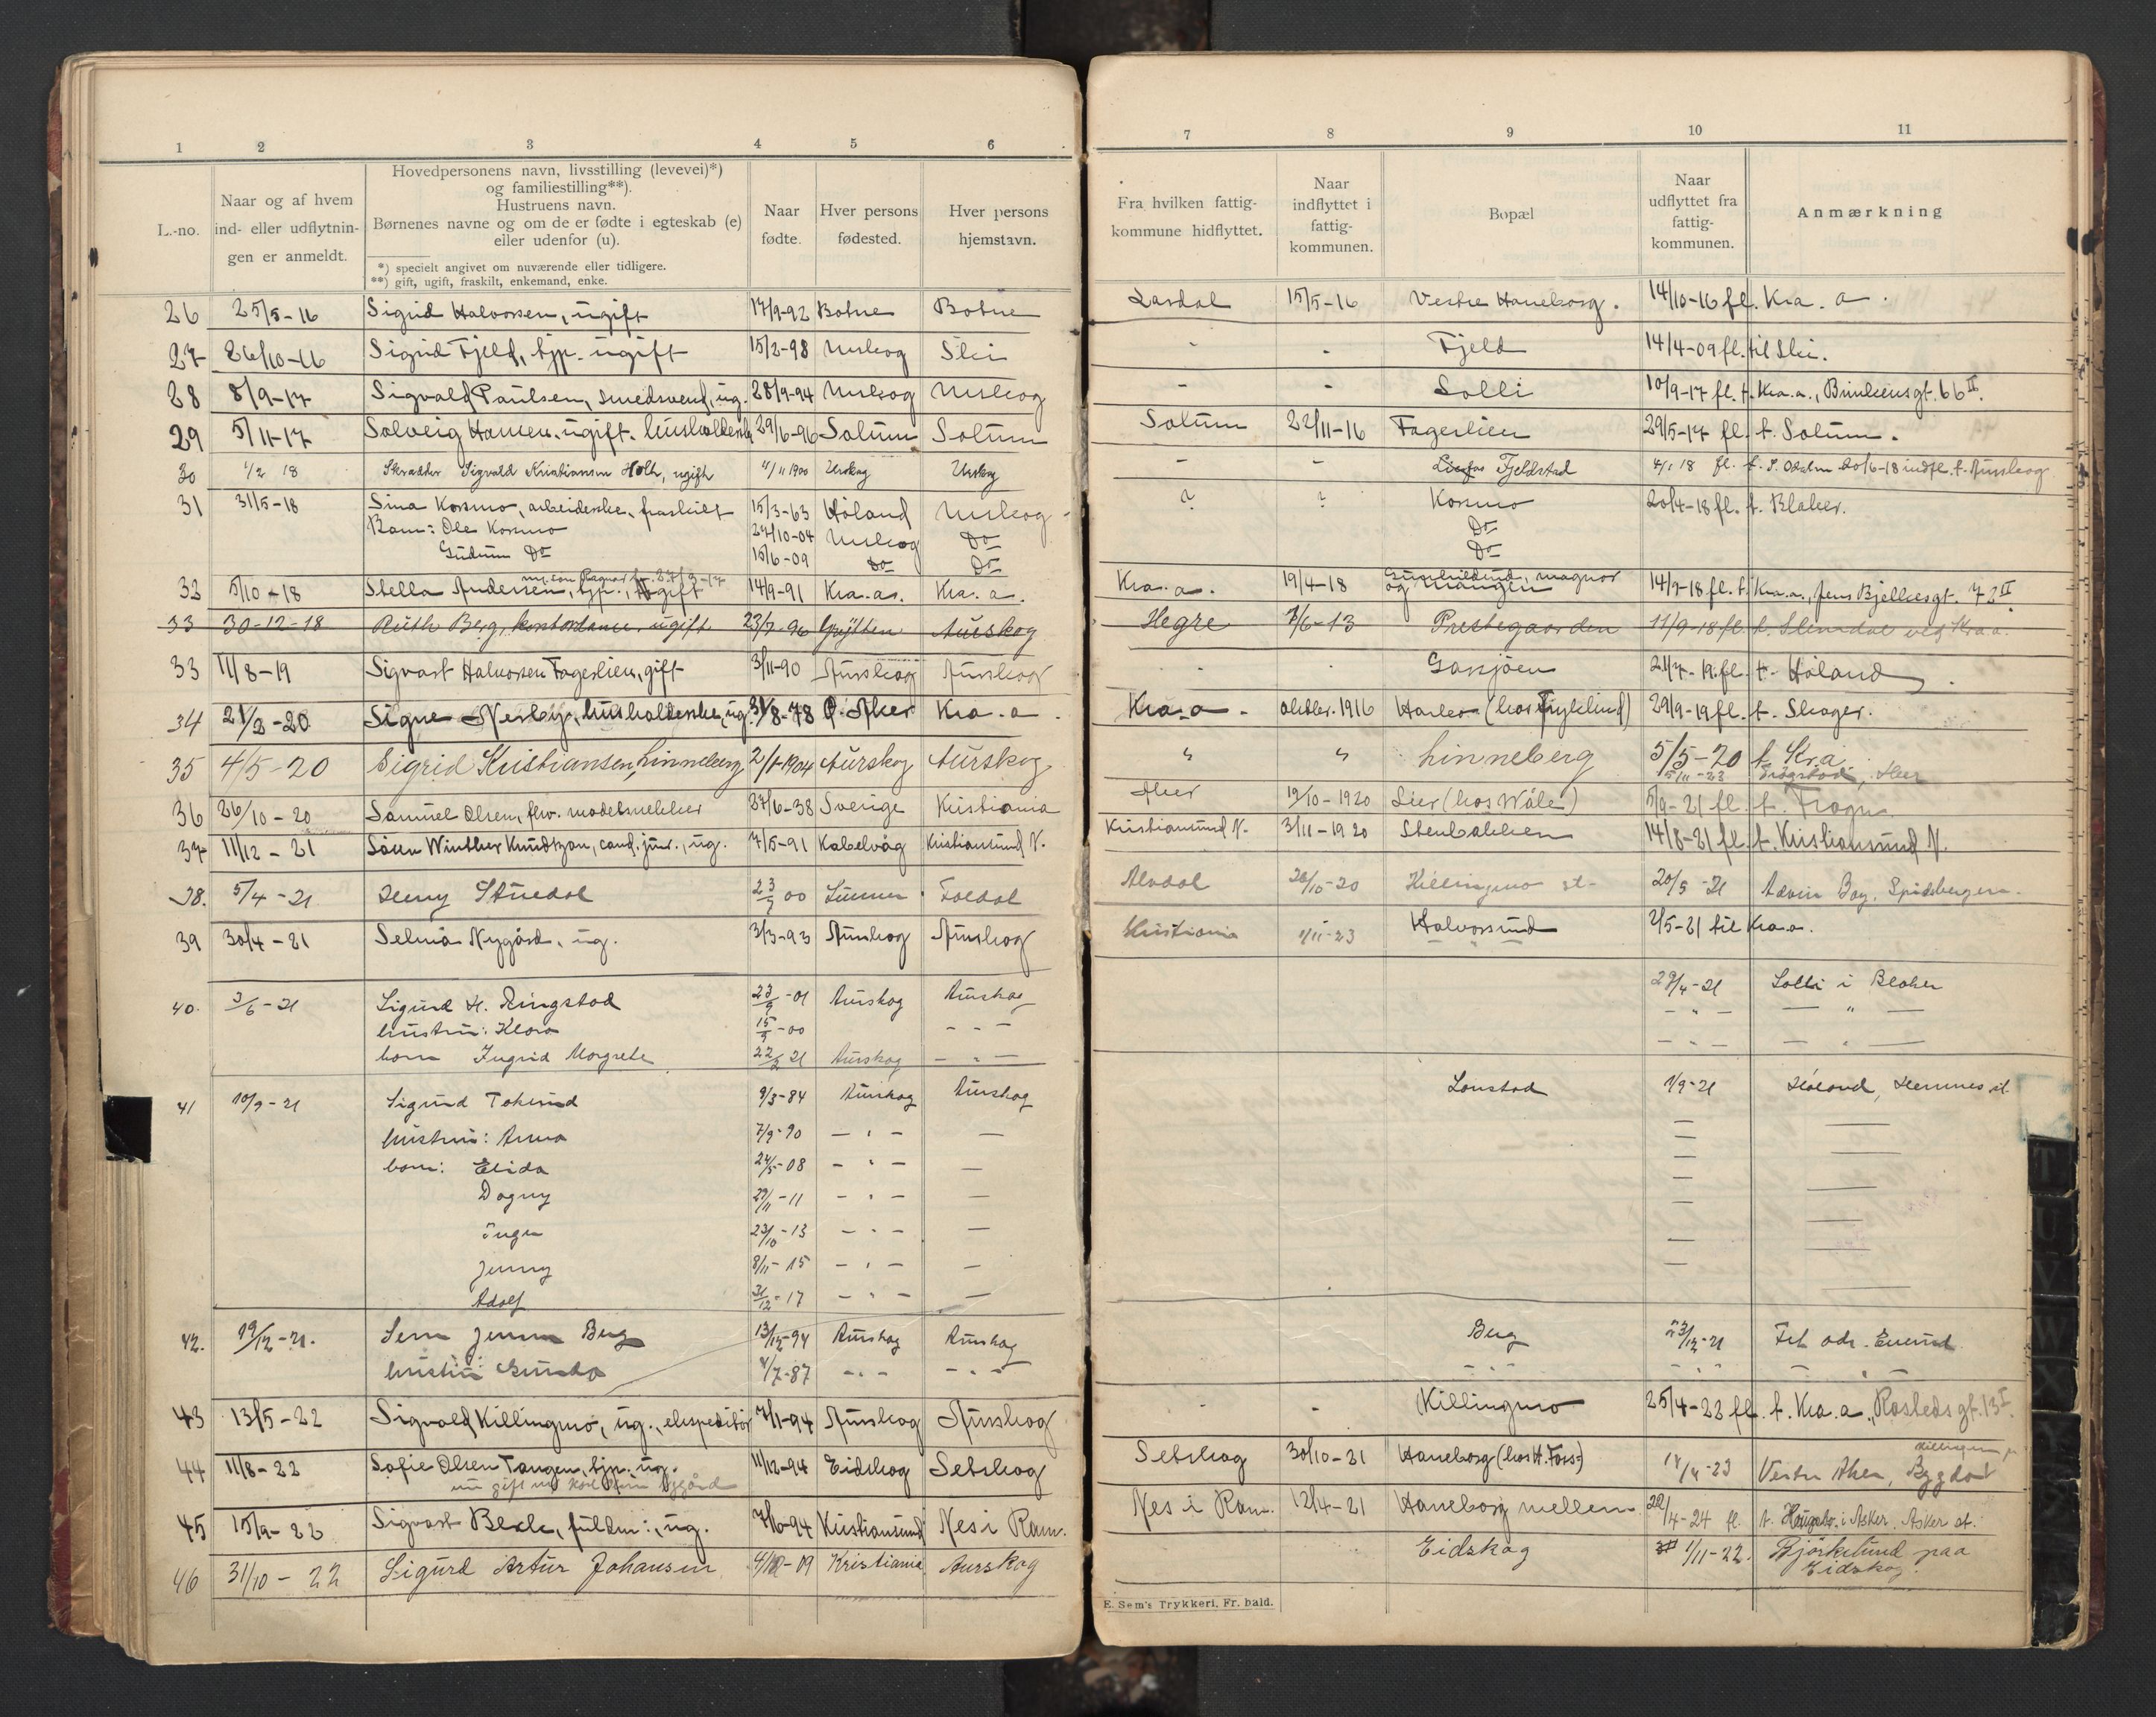 1 2 3 4 5 6
L.-no.
Naar og af hvem
ind- eller udflytnin-
gen er anmeldt.
Hovedpersonens navn, livsstilling (levevei)*)
og familiestilling**).
Hustruens navn.
Børnenes navne og om de er fødte i egteskab (e)
eller udenfor (u).
*) specielt angivet om nuværende eller tidligere.
**) gift, ugift, fraskilt, enkemand, enke.
Naar
fødte.
Hver persons
fødested.
Hver persons
hjemstavn.
26 25/5-16 Sigrid Halvorsen, ugift 17/9-92 Botne Botne
27 26/10-16 Sigrid Fjeld, tjp. ugift 15/2-98 Urskog Ski
28 8/9-17 Sigvald Paulsen, smedsvend, ug. 28/9-94 Urskog Urskog
29 5/11-17 Solveig Hansen, ugift. husholderske 29/6-96 Solum Solum
30 1/2 18 Skrædder Sigvald Kristiansen Holth, ugift 4/11 1900 Urskog Urskog
31 31/5-18 Sina Kosmo, arbeiderske, fraskilt 15/3-63 Høland Urskog
Barn: Ole Kosmo 24/10-04 Urskog Do
Gudrun Do 15/6-09 Do Do
32 5/10-18 Stella Andersen, tjp., ugift 14/9-91 Kra.a. Kra.a.
33 30-12-18 Ruth Berg, kontordame, ugift 23/7-96 Grytten Aurskog
33 11/8-19 Sigvart Halvorsen Fagerlien, gift 3/11-90 Aurskog Aurskog
34 21/2-20 Signe Nesby, husholderske, ug. 31/8-78 Ø. Aker Kra.a.
35 4/5-20 Sigrid Kristiansen, Linneberg 2/1-1904 Aurskog Aurskog
36 26/10-20 Samuel Olsen, flw. modelsnekker 27/6-38 Sverige Kristiania
37 11/12-21 Søren Winther Knudtzon, cand. jur., ug. 7/5-91 Kabelvåg Kristiansund N.
38. 5/4-21 23/7 00 Foldal
39 30/4-21 Selma Nygård, ug. 3/3-93 Aurskog Aurskog
40. 3/6-21 Sigurd H. Ringstad 23/9-01 Aurskog Aurskog
hustru: Klara 15/9-00 - - -
barn Ingrid Margrete 22/2 21 Aurskog - " -
41 10/9-21 Sigurd Tokerud 9/3-84 Aurskog Aurskog
hustru: Anna 7/9-90 - " - -
barn: Elida 24/5-08 - " - -
Dagny 29/11-11 - " - -
Inga 23/10-13 - " - -
Jenny 8/11-15 - " - -
Adolf 31/12-17 - " - -
42. 19/12-21. Berg 13/12-94 Aurskog Aurskog
hustru: Gunda 4/7-87 - " - - " -
43 13/5-22 Sigvald Killingmo, ug., ekspeditør 7/1-94 Aurskog Aurskog
44 11/8-22 Sofie Olsen Tangen, tjp. ug. 11/12-94 Eidskog Setskog
45 15/9-22 Sigvart Bekk, fuldm:, ug. 7/10-94 Kristiansund Nes i Rom.
46 31/10-22 Sigurd Artur Johansen 4/12-09 Kristiania Aurskog
7 8 9 10 11
Fra hvilken fattig-
kommune hidflyttet.
Naar
indflyttet i
fattig-
kommunen.
Bopæl
Naar
udflyttet fra
fattig-
kommunen.
Anmærkning
Lardal 15/5-16 Vestre Haneborg. 14/10-16 fl. Kra.a.
- - Fjeld 14/4-09 fl. til Ski.
- - Solli 10/9-17 fl. t. Kra.a., Brinkensgt. 66 II.
Solum 22/11-16 Fagerlien 29/5-17 fl. t. Solum.
- - Fjeldstad 4/1 18 fl. t. S. Odalen 20/6-18 indfl. t. Aurskog
? ? Kosmo 20/4-18 fl. t. Blaker.
Do
Do
Kra.a. 19/4-18 og Mangen 14/9-18 fl. t. Kra.a., Jens Bjelkesgt. 72 II
Hegre 7/6-13 Prestegaarden 11/9-18 fl. t. Slemdal ved Kra.a.
" " Gasjøen 21/7-19. fl. t. Høland.
Kra.a. oktober. 1916 29/9-19 fl. t. Skoger.
" " Linneberg 5/5-20 t. Kra.
5/11-23
Aker 19/10-1920 Lier (hos Wåle) 5/9-21 fl. t. Frogn
Kristiansund N. 3/11-1920 Stenbakken 14/8-21 fl. t. Kristiansund N.
Alvdal 26/10-20 Killingmo st. 20/5-21 Advin Bay, Spidsbergen.
Kristiania 1/11-23 Halvorsrud 2/5-21 til Kra.a.
29/4-21 Solli i Blaker
- " - - " -
- " - - " -
Lonstad 1/9-21 Høland, Hemnes st.
Berg 23/12-21
- " - - " -
- - Killingmo 25/4-22 fl. t. Kra.a., Rostedsgt. 13 I.
Setskog 30/10-21 Haneborg (hos H. Foss) 14/4-23 Vestre Aker, Bygdø
Nes i Rom. 12/4-21 Haneborg mellem 22/4-24 fl. t. i Asker. Asker st.
Eidskog 1/11-22. Bjørkelund paa
Eidskog.
E. Sem's Trykkeri, Fr. hald.
T
U
V
X